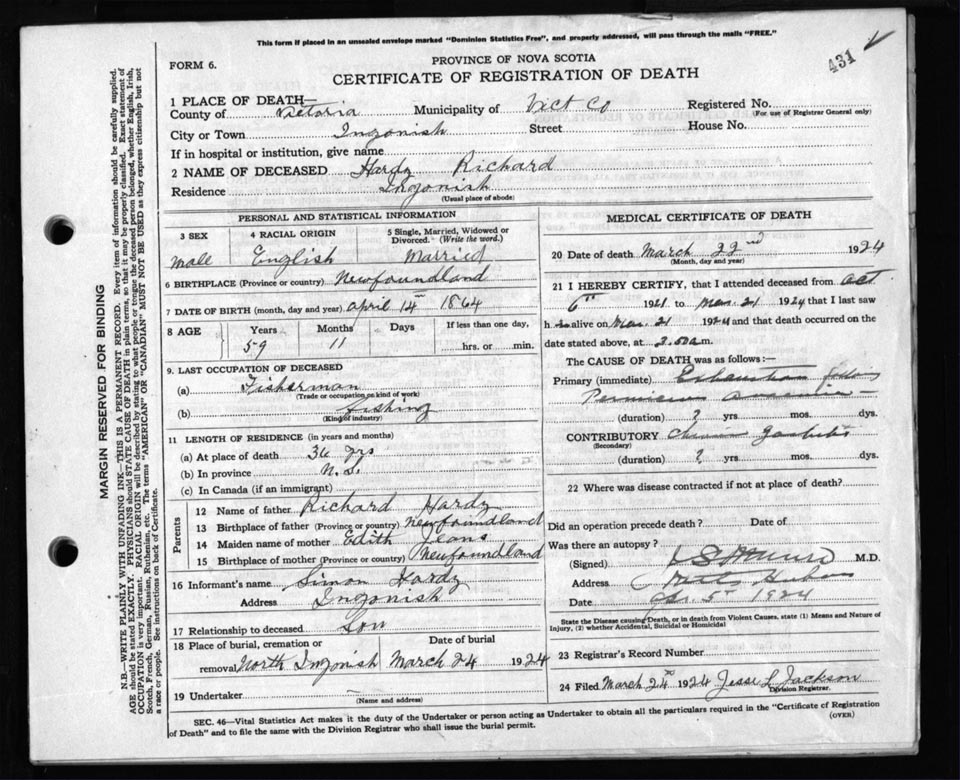 This form if placed in an unsealed envelope marked "Dominion Statistics Free", and properly addressed, will pass through the mails "FREE."
431
FORM 6.
PROVINCE OF NOVA SCOTIA
CERTIFICATE OF REGISTRATION OF DEATH
1 PLACE OF DEATH—
County of Victoria Municipality of Vict Co Registered No.
(For use of Registrar General only)
City or Town Ingonish Street House No.
If in hospital or institution, give name
2 NAME OF DECEASED Hardy Richard
Residence Ingonish
(Usual place of abode)
PERSONAL AND STATISTICAL INFORMATION
3 SEX 4 RACIAL ORIGIN 5 Single, Married, Widowed or Divorced. (Write the word.)
Male English Married
6 BIRTHPLACE (Province or country) Newfoundland
7 DATE OF BIRTH (month, day and year) april 14th 1864
8 AGE Years Months Days If less than one day,
59 11 hrs. or min.
9. LAST OCCUPATION OF DECEASED
(a) Fisherman
(Trade or occupation or kind of work)
(b) fishing
(Kind of industry)
11 LENGTH OF RESIDENCE (in years and months)
(a) At place of death 36 yrs
(b) In province N.S.
(c) In Canada (if an immigrant)
Parents
12 Name of father Richard Hardy
13 Birthplace of father (Province or country) Newfoundland
14 Maiden name of mother Edith Jeans
15 Birthplace of mother (Province or country) Newfoundland
16 Informant's name Simon Hardy
Address Ingonish
17 Relationship to deceased Son
18 Place of burial, cremation or removal North Ingonish Date of burial March 24 1924
19 Undertaker —
(Name and address)
MEDICAL CERTIFICATE OF DEATH
20 Date of death March 22nd 1924
(Month, day and year)
21 I HEREBY CERTIFY, that I attended deceased from Oct
6th 1921 to Mar. 21 1924 that I last saw
h im alive on Mar. 21 1924 and that death occurred on the
date stated above, at 3.50 a.m.
The CAUSE OF DEATH was as follows:—
Primary (immediate) Exhaustion
Pernicious anaemia
(duration) ? yrs. mos. dys.
CONTRIBUTORY Chronic Gastritis
(Secondary)
(duration) ? yrs. mos. dys.
22 Where was disease contracted if not at place of death?
Did an operation precede death? Date of
Was there an autopsy?
(Signed) M.D.
Address
Date 5th 1924
State the Disease causing Death, or in death from Violent Causes, state (1) Means and Nature of
Injury, (2) whether Accidental, Suicidal or Homicidal
23 Registrar's Record Number
24 Filed March 24th 1924 Jesse L Jackson
Division Registrar.
SEC. 46—Vital Statistics Act makes it the duty of the Undertaker or person acting as Undertaker to obtain all the particulars required in the "Certificate of Registration
of Death" and to file the same with the Division Registrar who shall issue the burial permit.
(OVER)
MARGIN RESERVED FOR BINDING
N.B.—WRITE PLAINLY WITH UNFADING INK—THIS IS A PERMANENT RECORD. Every item of information should be carefully supplied.
AGE should be stated EXACTLY. PHYSICIANS should STATE CAUSE OF DEATH in plain terms, so that it may be properly classified. Exact statement of
OCCUPATION is very important. RACIAL ORIGIN will be described by stating to what people or tongue the deceased person belonged, whether English, Irish,
Scotch, French, German, Russian, Ruthenian, etc. The terms "AMERICAN" OR "CANADIAN" MUST NOT BE USED as they express citizenship but not
a race or people. See instructions on back of Certificate.